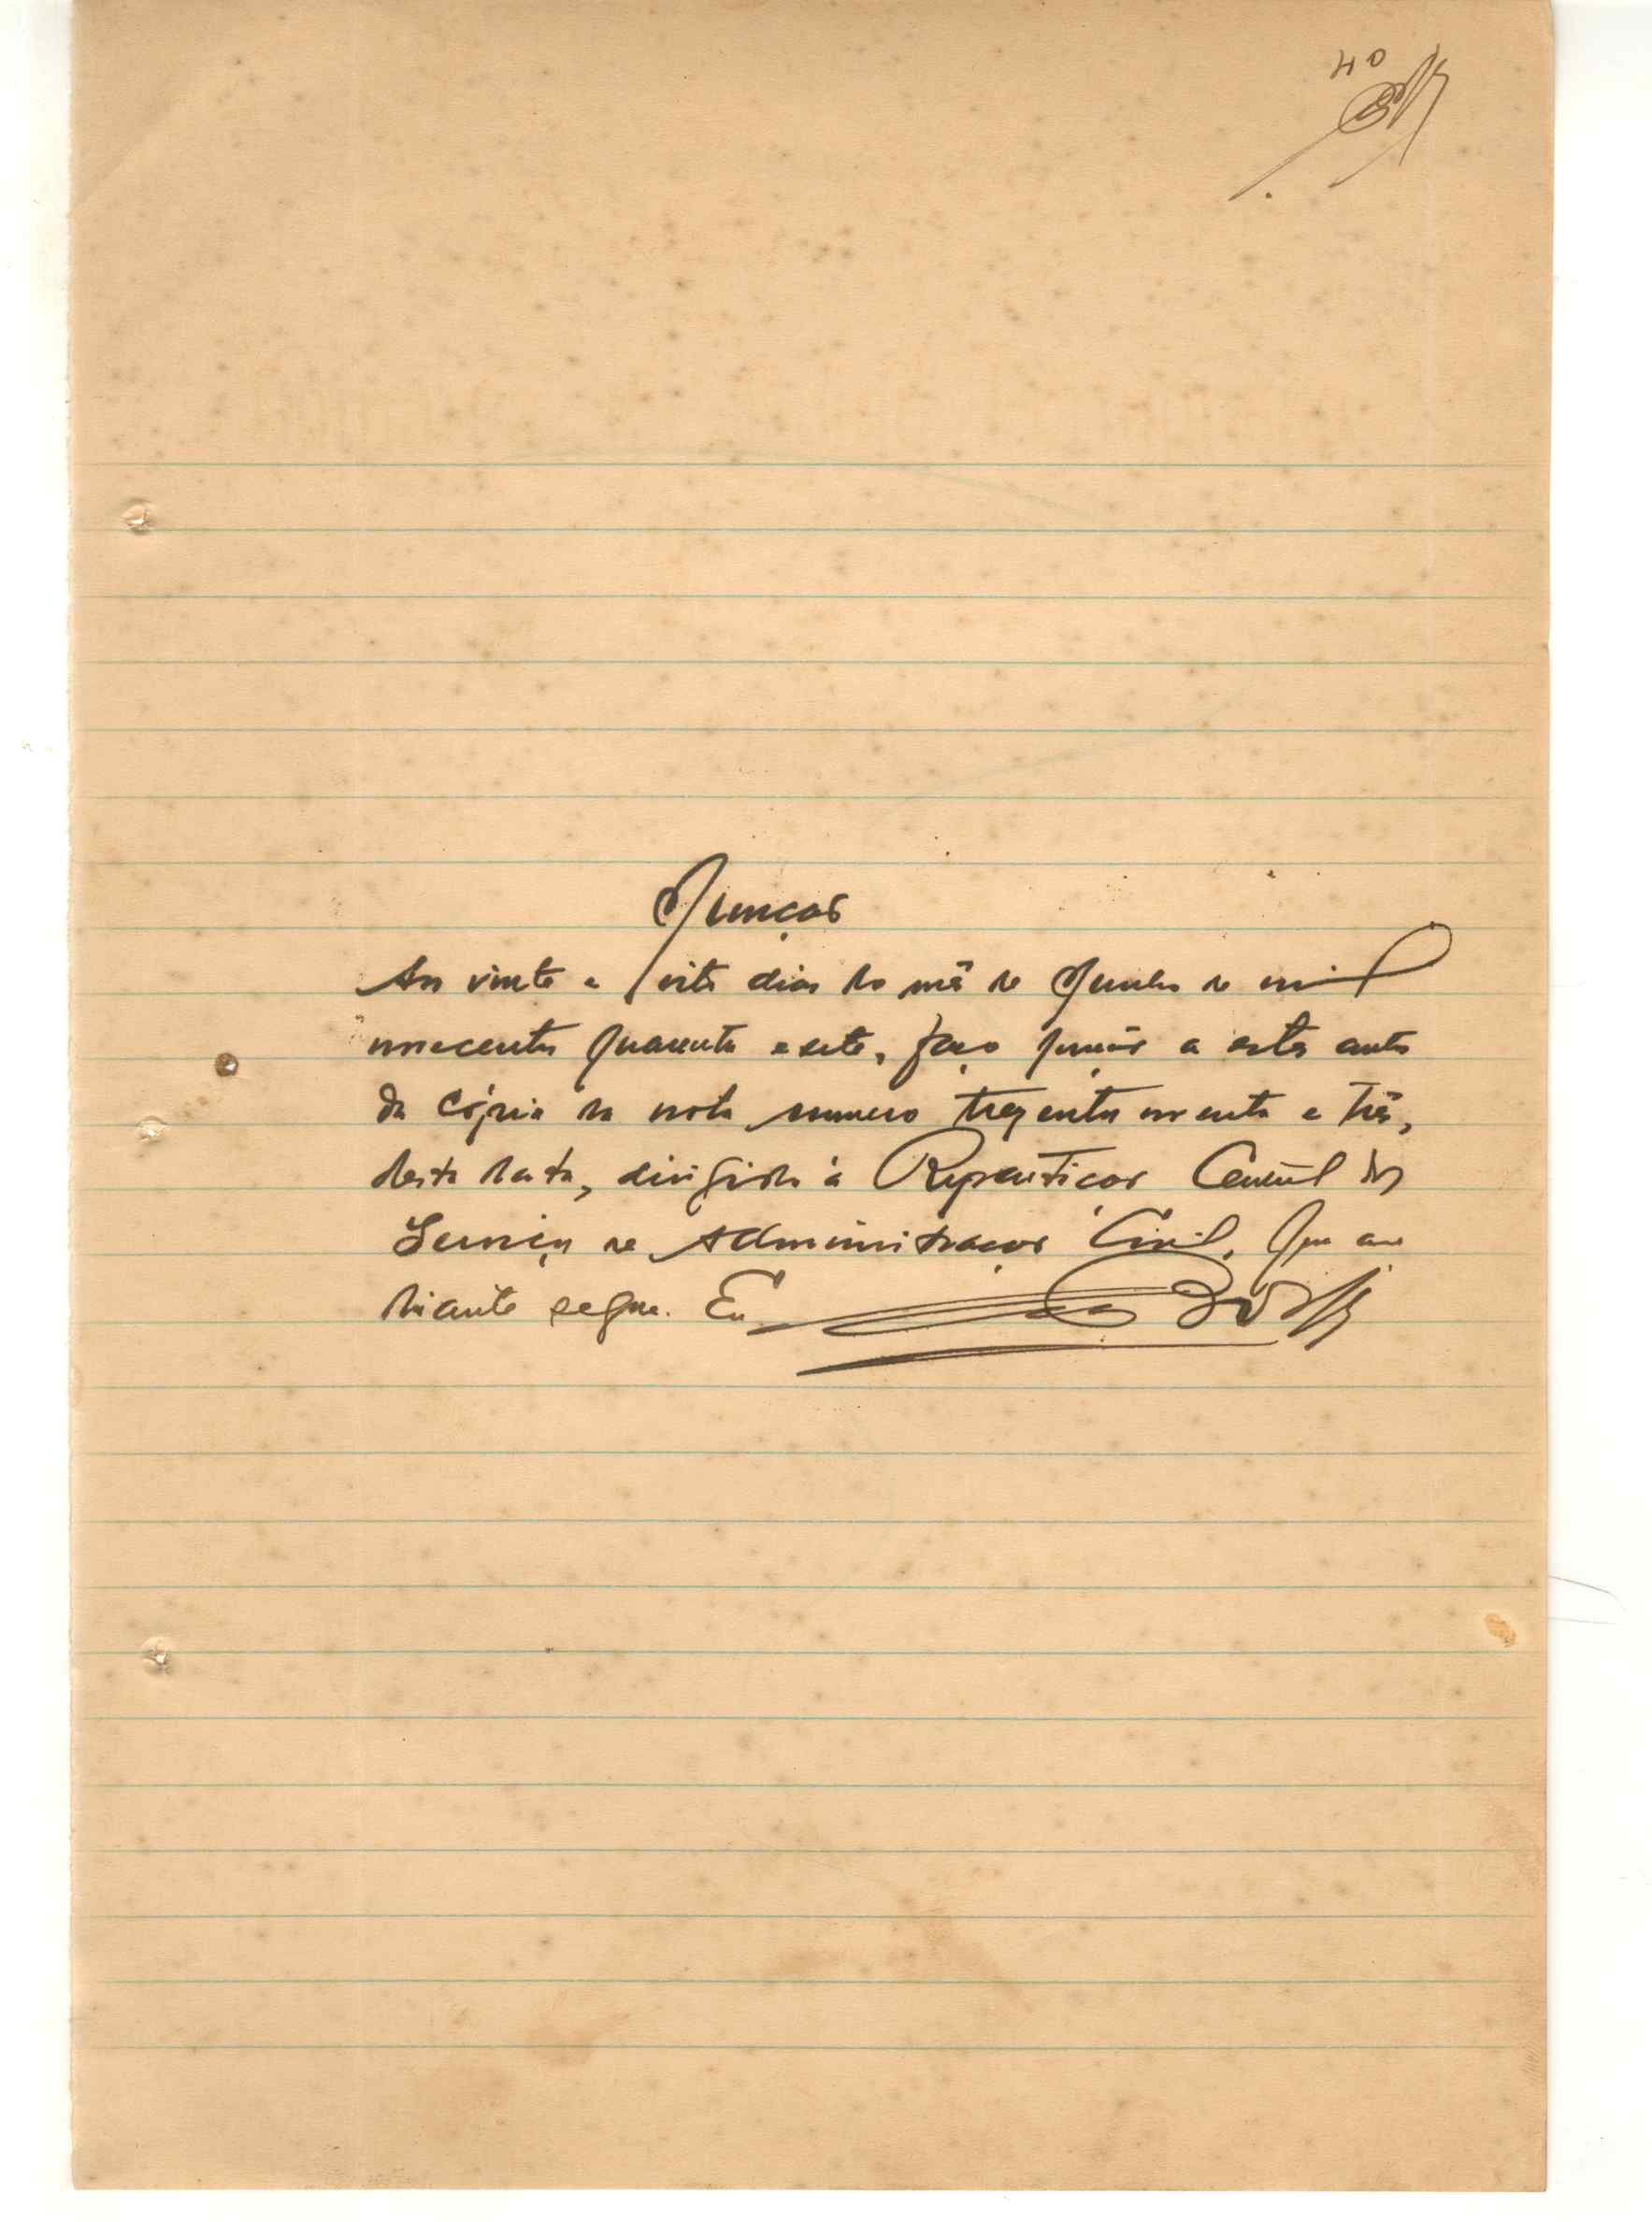 40
Junção
Aos vinte e oito dias do mês de Junho de mil
novecentos quarenta e sete, faço junção a estes autos
da cópia da nota numero trezentos noventa e três,
desta data, dirigida à Repartição Central dos
Serviços de Administração Civil, que a
diante segue. Eu